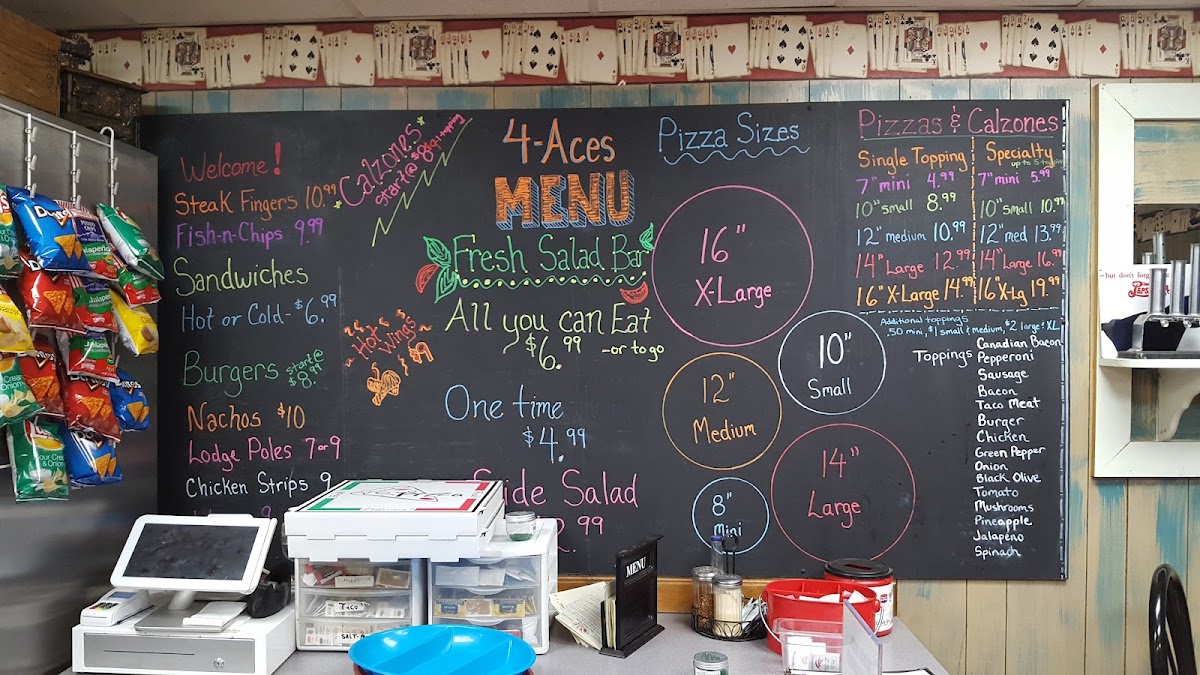 Welcome!
Steak Fingers 10.99
Fish-n-Chips 9.99
Sandwiches
Hot or Cold - $6.99
Burgers start @ $8.99
Nachos $10
Lodge Poles 7 or 9
Chicken Strips 9
*Calzones*
start @ $8.99
+ topping
Hot Wings
$9
4-Aces
MENU
Fresh Salad Bar
All you can Eat
$6.99 -or to go
One time
$4.99
Side Salad
2.99
Pizza Sizes
16"
X-Large
10"
Small
12"
Medium
14"
Large
8"
mini
Pizzas & Calzones
Single Topping
7" mini 4.99
10" small 8.99
12" medium 10.99
14" Large 12.99
16" X-Large 14.99
Specialty
up to 5 toppings
7" mini 5.99
10" small 10.99
12" med 13.99
14" Large 16.99
16" X-Lg 19.99
Additional toppings
.50 mini, $1 small & medium, $2 large & XL
Toppings
Canadian Bacon
Pepperoni
Sausage
Bacon
Taco Meat
Burger
Chicken
Green Pepper
Onion
Black Olive
Tomato
Mushrooms
Pineapple
Jalapeno
Spinach
-but don't forget
MENU
TACO